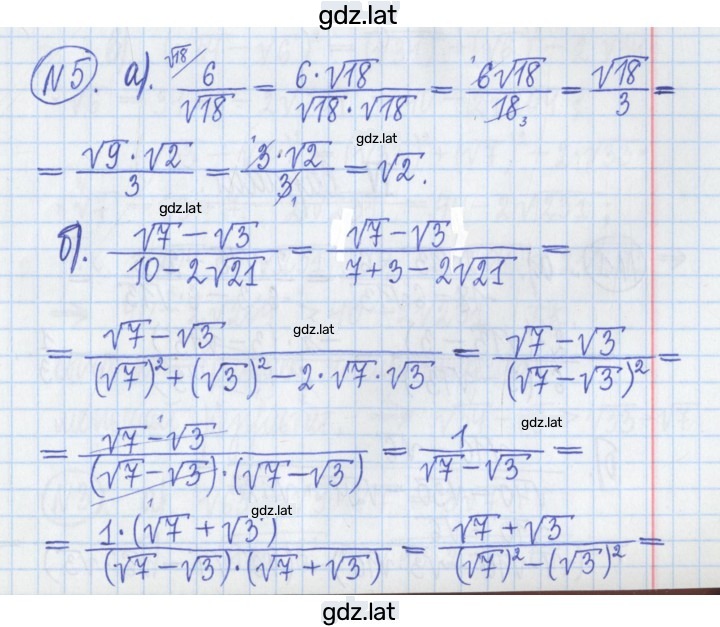 gdz.lat
№5. а). √18/ 6/√18 = (6·√18)/(√18·√18) = (6√18)/18 = √18/3 =
gdz.lat
= (√9·√2)/3 = (3·√2)/3 = √2.
gdz.lat
б). (√7-√3)/(10-2√21) = (√7-√3)/(7+3-2√21) =
gdz.lat
= (√7-√3)/((√7)²+(√3)²-2·√7·√3) = (√7-√3)/(√7-√3)² =
gdz.lat
= (√7-√3)/((√7-√3)·(√7-√3)) = 1/(√7-√3) =
gdz.lat
= (1·(√7+√3))/((√7-√3)·(√7+√3)) = (√7+√3)/((√7)²-(√3)²) =
gdz.lat